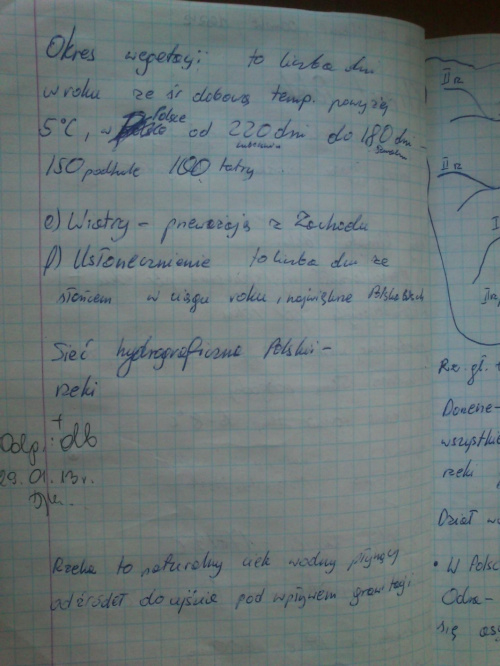 Okres wegetacji to liczba dni
w roku ze śr dobową temp. powyżej
5°C, w Polsce od 220 dni do 180 dni -
150 podhale 100 tatry
e) Wiatry - przeważają z Zachodu
f) Usłonecznienie to liczba dni ze
słońcem w ciągu roku, największe
Sieć hydrograficzna Polski -
rzeki
+
Odp: db
29.01.13r.
Rzeka to naturalny ciek wodny płynący
od źródeł do ujścia pod wpływem grawitacji
II rz
II rz
Rz. gł.
wszystkie
rzeki
Dział
• W Polsc
Odra -
się